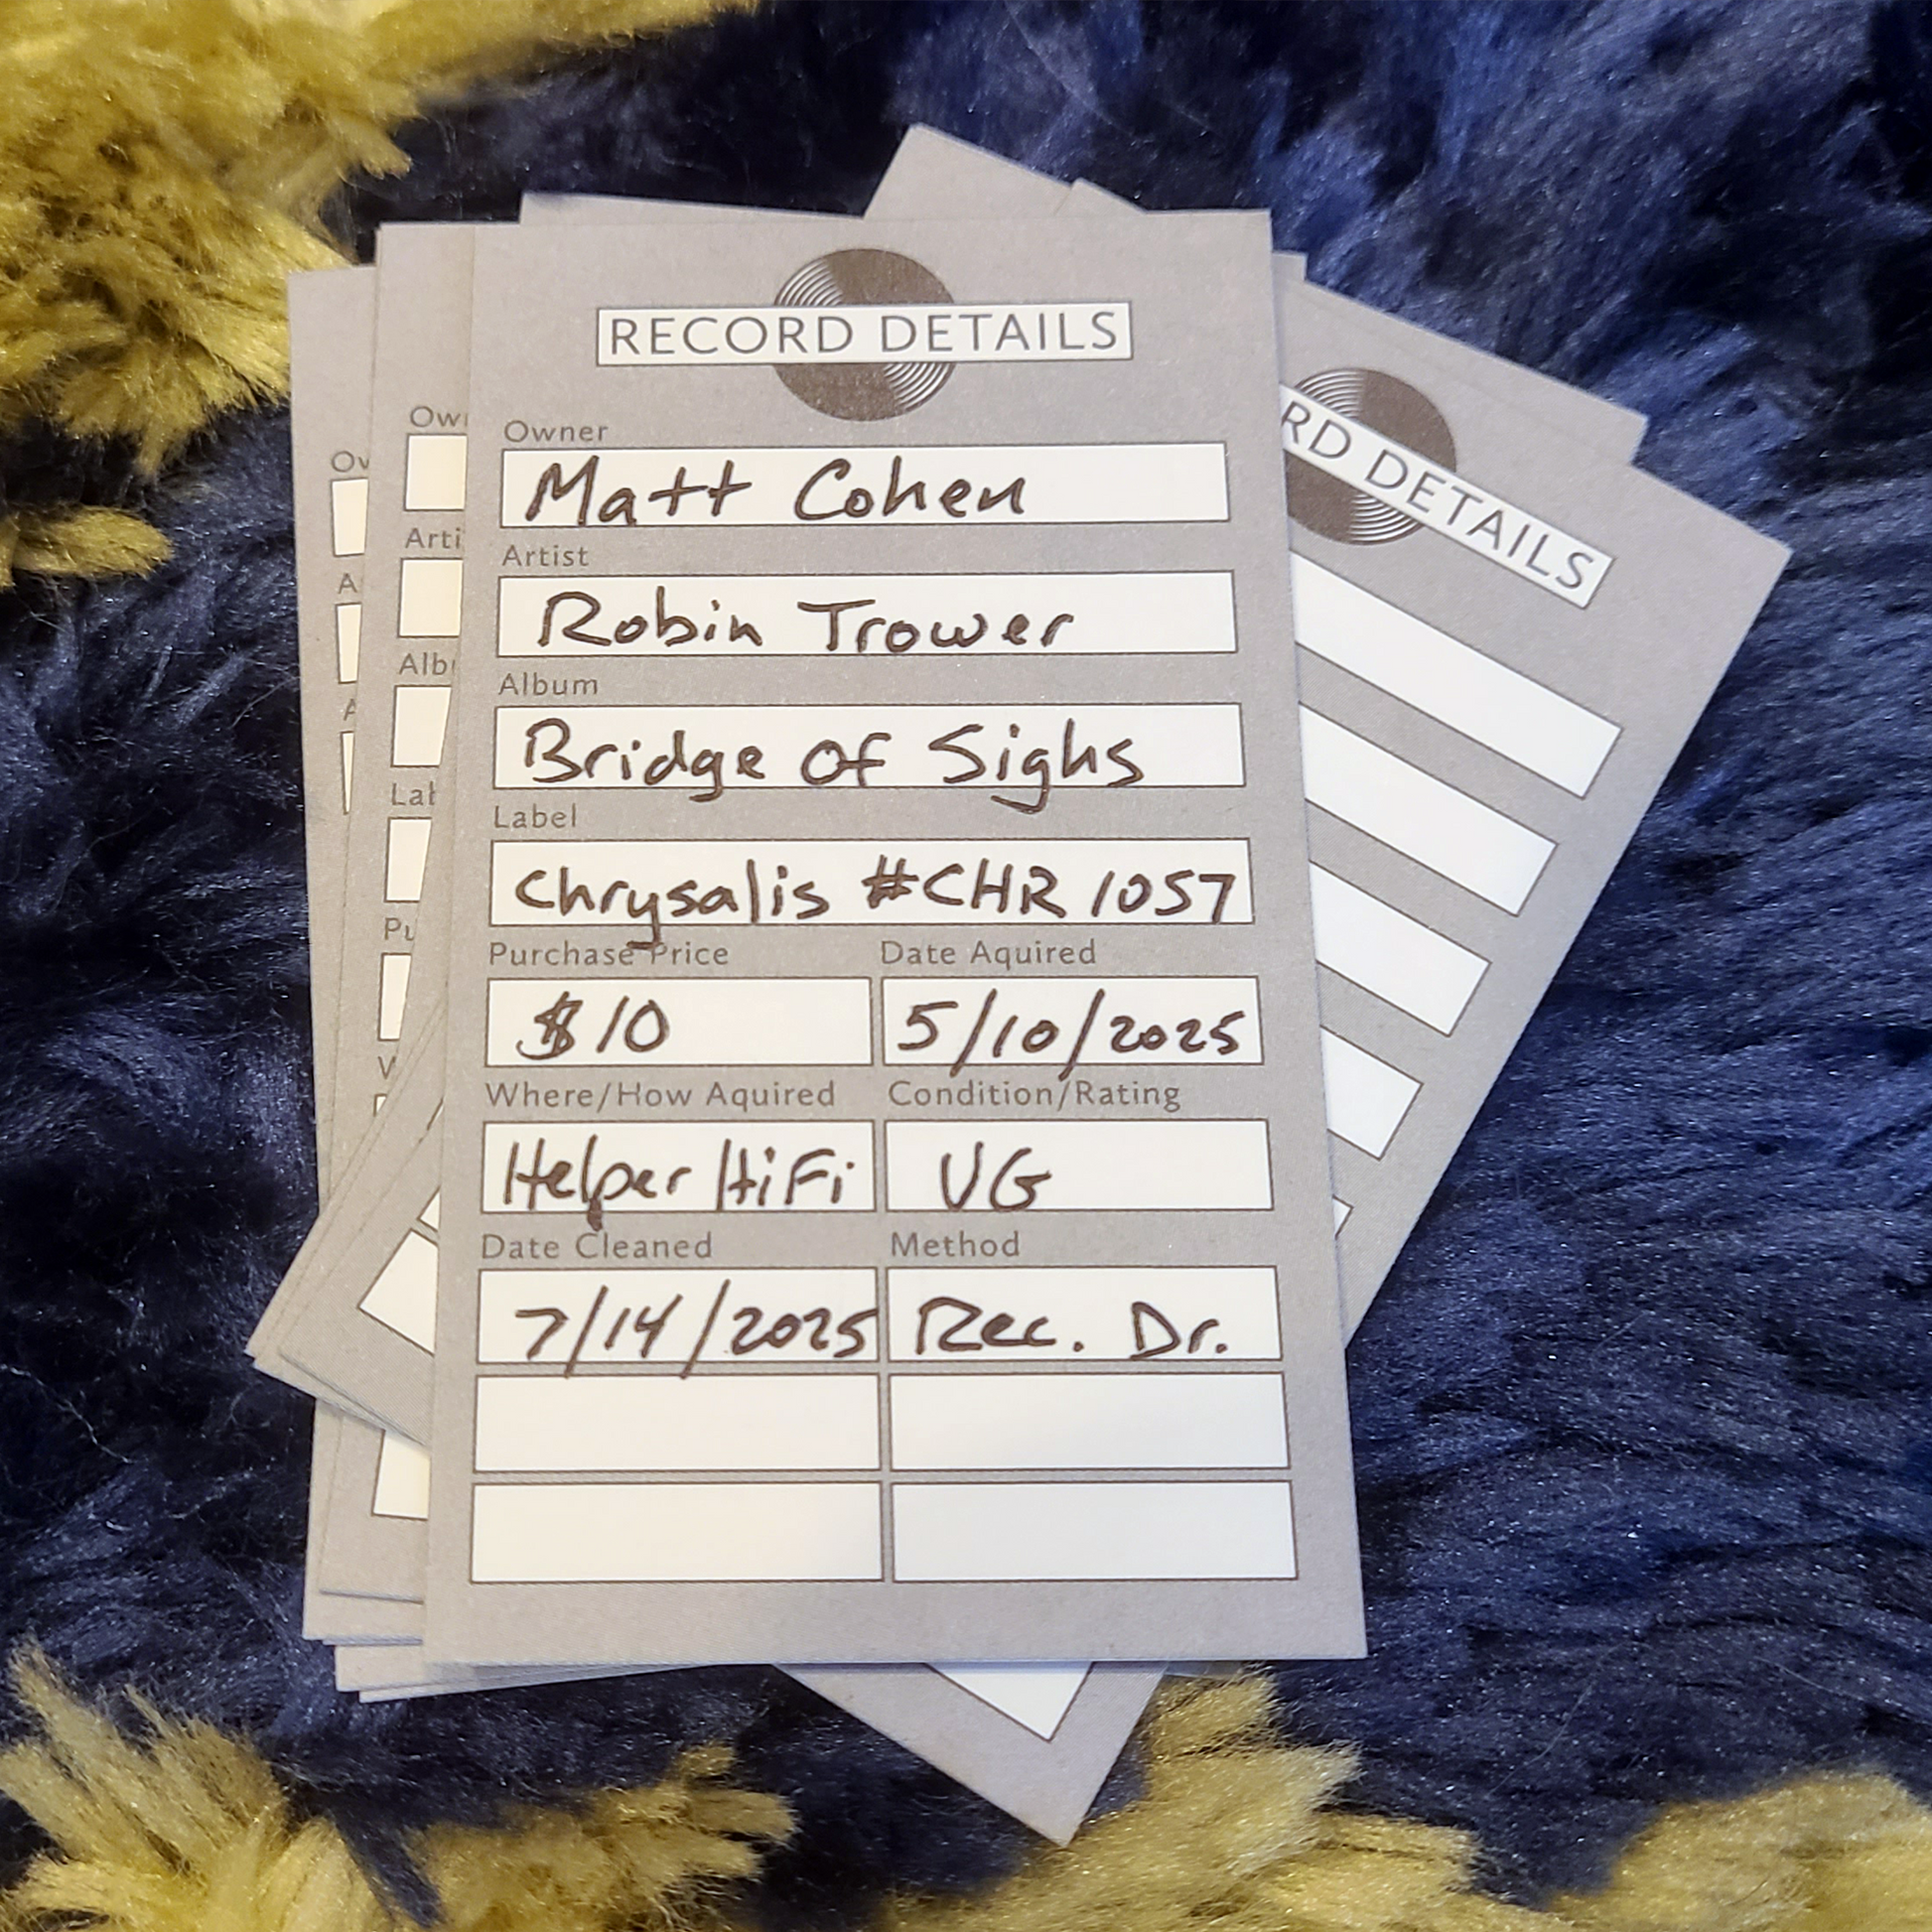 RECORD DETAILS
Owner
Matt Cohen
Artist
Robin Trower
Album
Bridge of Sighs
Label
Chrysalis #CHR 1057
Purchase Price Date Aquired
$10 5/10/2025
Where/How Aquired Condition/Rating
Helper HiFi VG
Date Cleaned Method
7/14/2025 Rec. Dr.
RD DETAILS
Ow
Arti
Alb
La
Pu
W
Ow
A
A